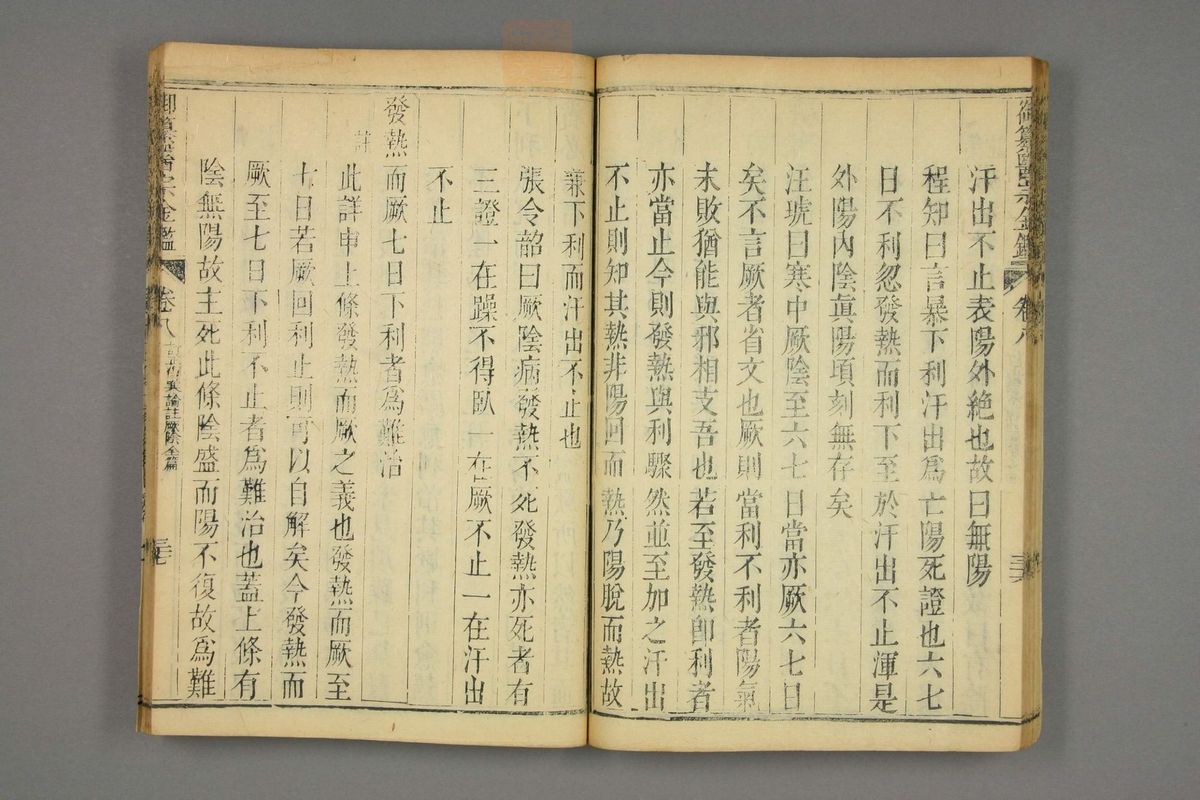 御纂醫宗金鑑
卷八
三六
汗出不止表陽外絶也故曰無陽
程知曰言暴下利汗出爲亡陽死證也六七
日不利忽發熱而利下至於汗出不止渾是
外陽內陰眞陽頃刻無存矣
汪琥曰寒中厥陰至六七日當亦厥六七日
矣不言厥者省文也厥則當利不利者陽氣
未敗猶能與邪相支吾也若至發熱卽利者
亦當止今則發熱與利驟然並至加之汗出
不止則知其熱非陽回而熱乃陽脫而熱故
兼下利而汗出不止也
張令韶曰厥陰病發熱不死發熱亦死者有
三證一在躁不得臥一在厥不止一在汗出
不止
發熱而厥七日下利者爲難治
註
此詳申上條發熱而厥之義也發熱而厥至
七日若厥回利止則可以自解矣今發熱而
厥至七日下利不止者爲難治也蓋上條有
陰無陽故主死此條陰盛而陽不復故爲難
御纂醫宗金鑑
卷八
論註厥陰全篇
三七